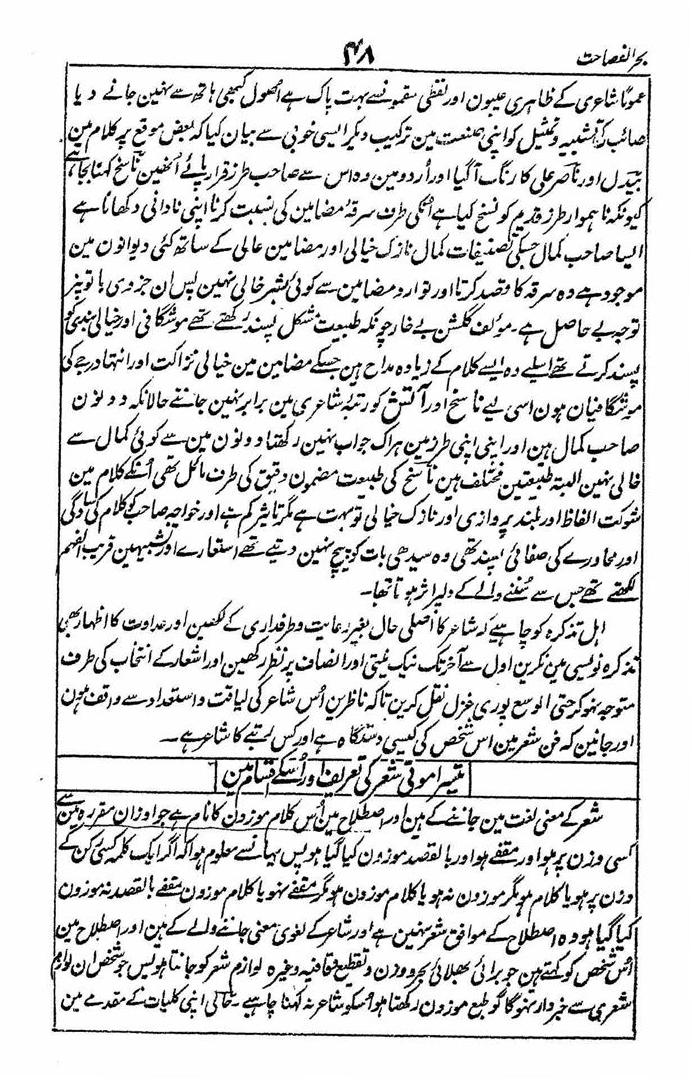 بحر الفصاحت
۴۸
عموماً شاعری کے ظاہری عیبون اور لفظی سقمونسے بہت پاک ہے اصول کبھی ہاتھ سے نہین جانے دیا
صائب کی تشبیہ و تمثیل کو اپنی صنعت مین ترکیب دیکر ایسی خوبی سے بیان کیا کہ بعض موقع پر کلام مین
بیدل اور ناصر علی کا رنگ آگیا اور اُردو مین وہ اس سے صاحب طرز قرار پائے انھین ناسخ کہنا بجا ہے
کیونکہ ناہموار طرز قدیم کو نسخ کیا ہے انکی طرف سرقۂ مضامین کی نسبت کرنا اپنی نادانی دکھانا ہے
ایسا صاحب کمال جسکی تصنیفات کمال نازک خیالی اور مضامین عالی کے ساتھ کئی دیوانون مین
موجود ہے وہ سرقہ کا قصد کرتا اور توارد مضامین سے کوئی بشر خالی نہین پس ان جزوی باتونپر
توجہ بے حاصل ہے۔ مؤلف گلشن بے خار چونکہ طبیعت مشکل پسند رکھتے تھے موشگافی اور خیالی بندی کو
پسند کرتے تھے اسلیے وہ ایسے کلام کے زیادہ مداح ہین جسکے مضامین مین خیالی نزاکت اور انتہا درجے کی
موشگافیان ہون اسی لیے ناسخ اور آتش کو رتبۂ شاعری مین برابر نہین جانتے حالانکہ دونون
صاحب کمال ہین اور اپنی اپنی طرز مین ہر اک جواب نہین رکھتا دونون مین سے کوئی کمال سے
خالی نہین البتہ طبیعتین مختلف ہین ناسخ کی طبیعت مضمون دقیق کی طرف مائل تھی اُنکے کلام مین
شوکت الفاظ اور بلند پروازی اور نازک خیالی تو بہت ہے مگر تاثیر کم ہے اور خواجہ صاحب کو کلام کی سادگی
اور محاورے کی صفائی پسند تھی وہ سیدھی بات کو پیچ نہین دیتے تھے استعارے اور تشبیہین قریب الفہم
لکھتے تھے جس سے سُننے والے کے دلپر اثر ہوتا تھا۔
اہل تذکرہ کو چاہیے کہ شاعر کا اصلی حال بغیر رعایت و طرفداری کے لکھین اور عداوت کا اظہار بھی
تذکرہ نویسی مین نکرین اول سے آخر تک نیک نیتی اور انصاف پر نظر رکھین اور اشعار کے انتخاب کی طرف
متوجہ نہوکر حتی الوسع پوری غزل نقل کرین تاکہ ناظرین اُس شاعر کی لیاقت و استعداد سے واقف ہون
اور جانین کہ فن شعر مین اس شخص کی کیسی دستگاہ ہے اور کس رتبے کا شاعر ہے۔
تیسرا موتی شعر کی تعریف اور اُسکے اقسام مین
شعر کے معنی لغت مین جاننے کے ہین اور اصطلاح مین اُس کلام موزون کا نام ہے جو اوزان مقررہ مین سے
کسی وزن پر ہو اور مقفے ہو اور بالقصد موزون کیا گیا ہو پس یہانسے معلوم ہوا کہ اگر ایک کلمہ کسی رکن کے
وزن پر ہو یا کلام ہو مگر موزون نہ ہو یا کلام موزون ہو مگر مقفے نہو یا کلام موزون مقفے بالقصد نہ موزون
کیا گیا ہو وہ اصطلاح کے موافق شعر نہین ہے اور شاعر کے لغوی معنی جاننے والے کے ہین اور اصطلاح مین
اُس شخص کو کہتے ہین جو برائی بھلائی بحر و وزن و تقطیع و قافیہ وغیرہ لوازم شعر کو جانتا ہو پس جو شخص ان لوازم
شعری سے خبردار نہوگا گو طبع موزون رکھتا ہو اُسکو شاعر نہ کہنا چاہیے۔ حالی اپنی کلیات کے مقدمے مین